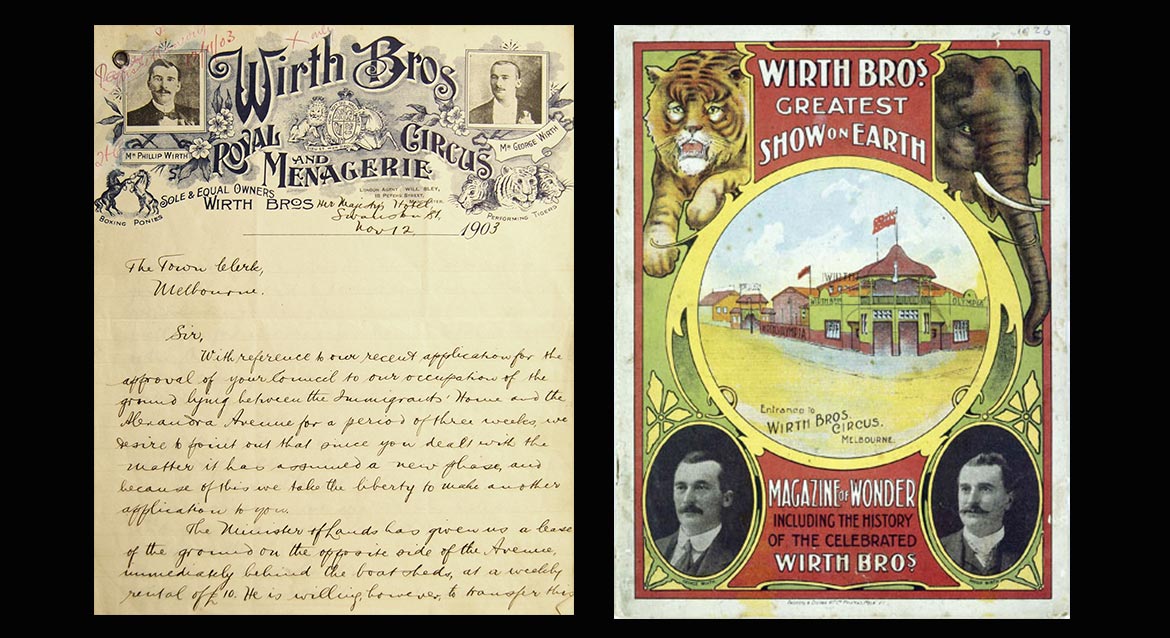 11/03
Wirth Bros
Royal
and
Menagerie
Circus
Mr Phillip Wirth
Mr George Wirth
Sole & Equal Owners
Wirth Bros
London Agent
Boxing Ponies
Performing Tigers
Her Majestys Hotel
Swanston St.
Nov 12 1903
The Town Clerk,
Melbourne.
Sir,
With reference to our recent application for the
approval of your Council to our occupation of the
ground lying between the Immigrants' Home and the
Alexandra Avenue for a period of three weeks, we
desire to point out that since you dealt with the
matter it has assumed a new phase, and
because of this we take the liberty to make another
application to you.
The Minister of Lands has given us a lease
of the ground on the opposite side of the Avenue,
immediately behind the boat sheds, at a weekly
rental of £10. He is willing, however, to transfer this
WIRTH BROS.
GREATEST
SHOW ON EARTH
WIRTH BROS
OLYMPIA
Entrance to
WIRTH BROS.
CIRCUS.
MELBOURNE.
MAGAZINE OF WONDER
INCLUDING THE HISTORY
OF THE CELEBRATED
WIRTH BROS